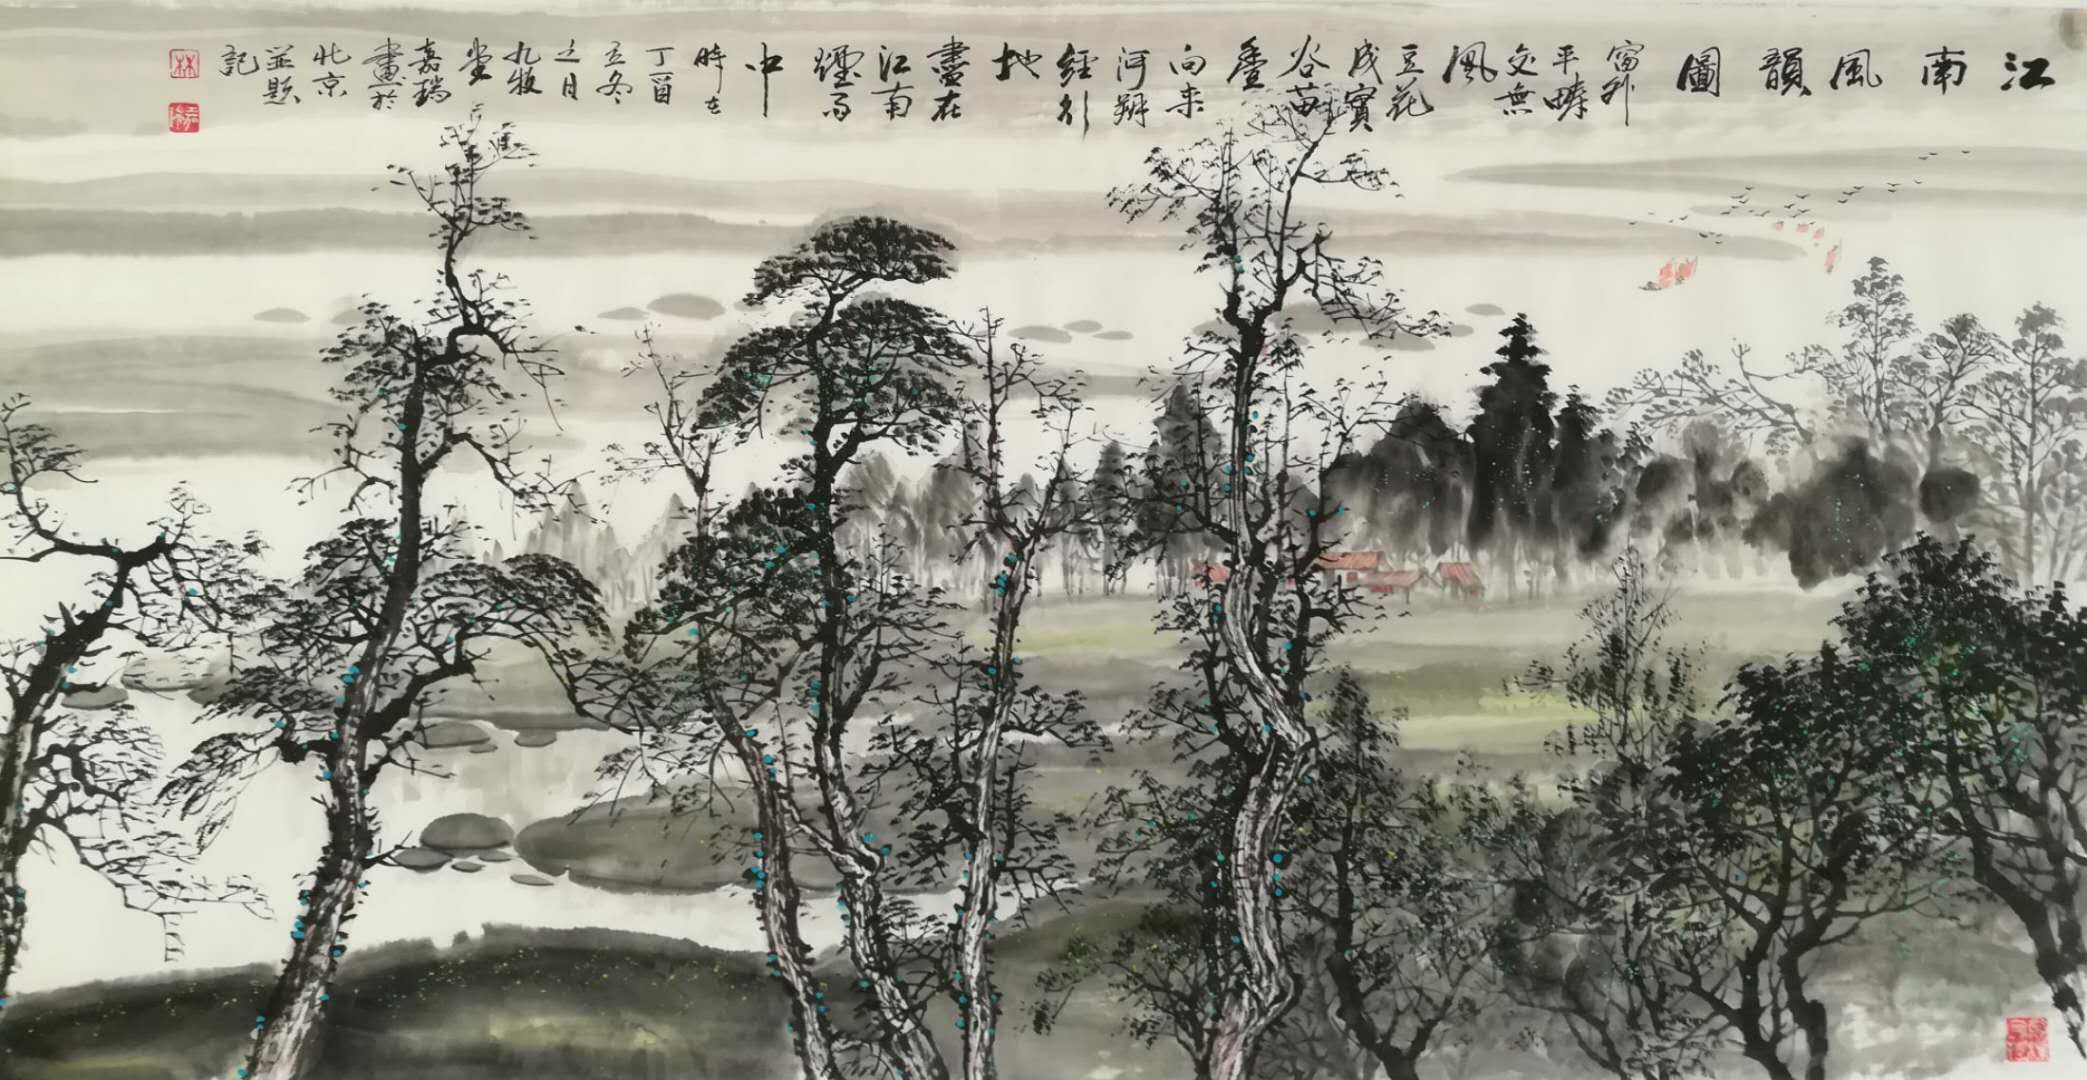 江南風韻圖
窗外
平疇
交無
風
豆花
成實
谷苗
疊
向来
河朔
經行
地
盡在
江南
煙雨
中
時在
丁酉
立冬
之日
九牧
堂
嘉瑞
畫於
北京
並題
記
林